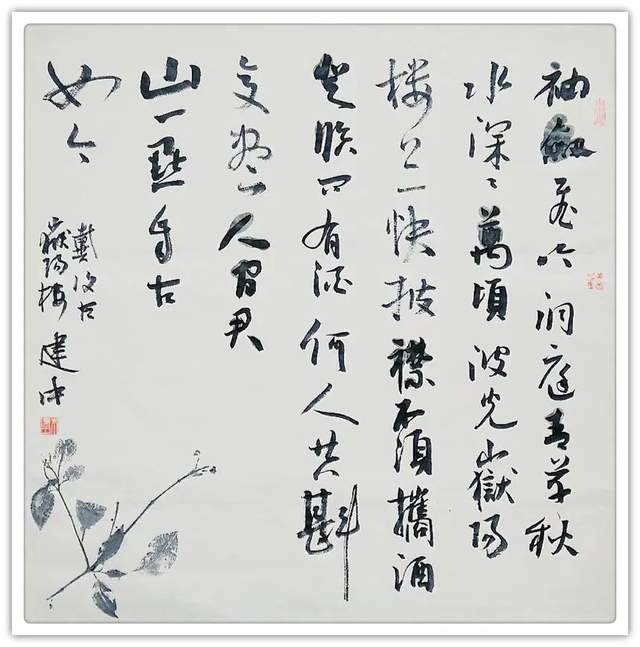 袖劍飛吟洞庭青草秋
水深〻萬頃波光嶽陽
楼上一快披襟不須攜酒
登臨問有酒何人共斟
變盡人間君
山一點自古
如今
戴復古
嶽陽樓 建中